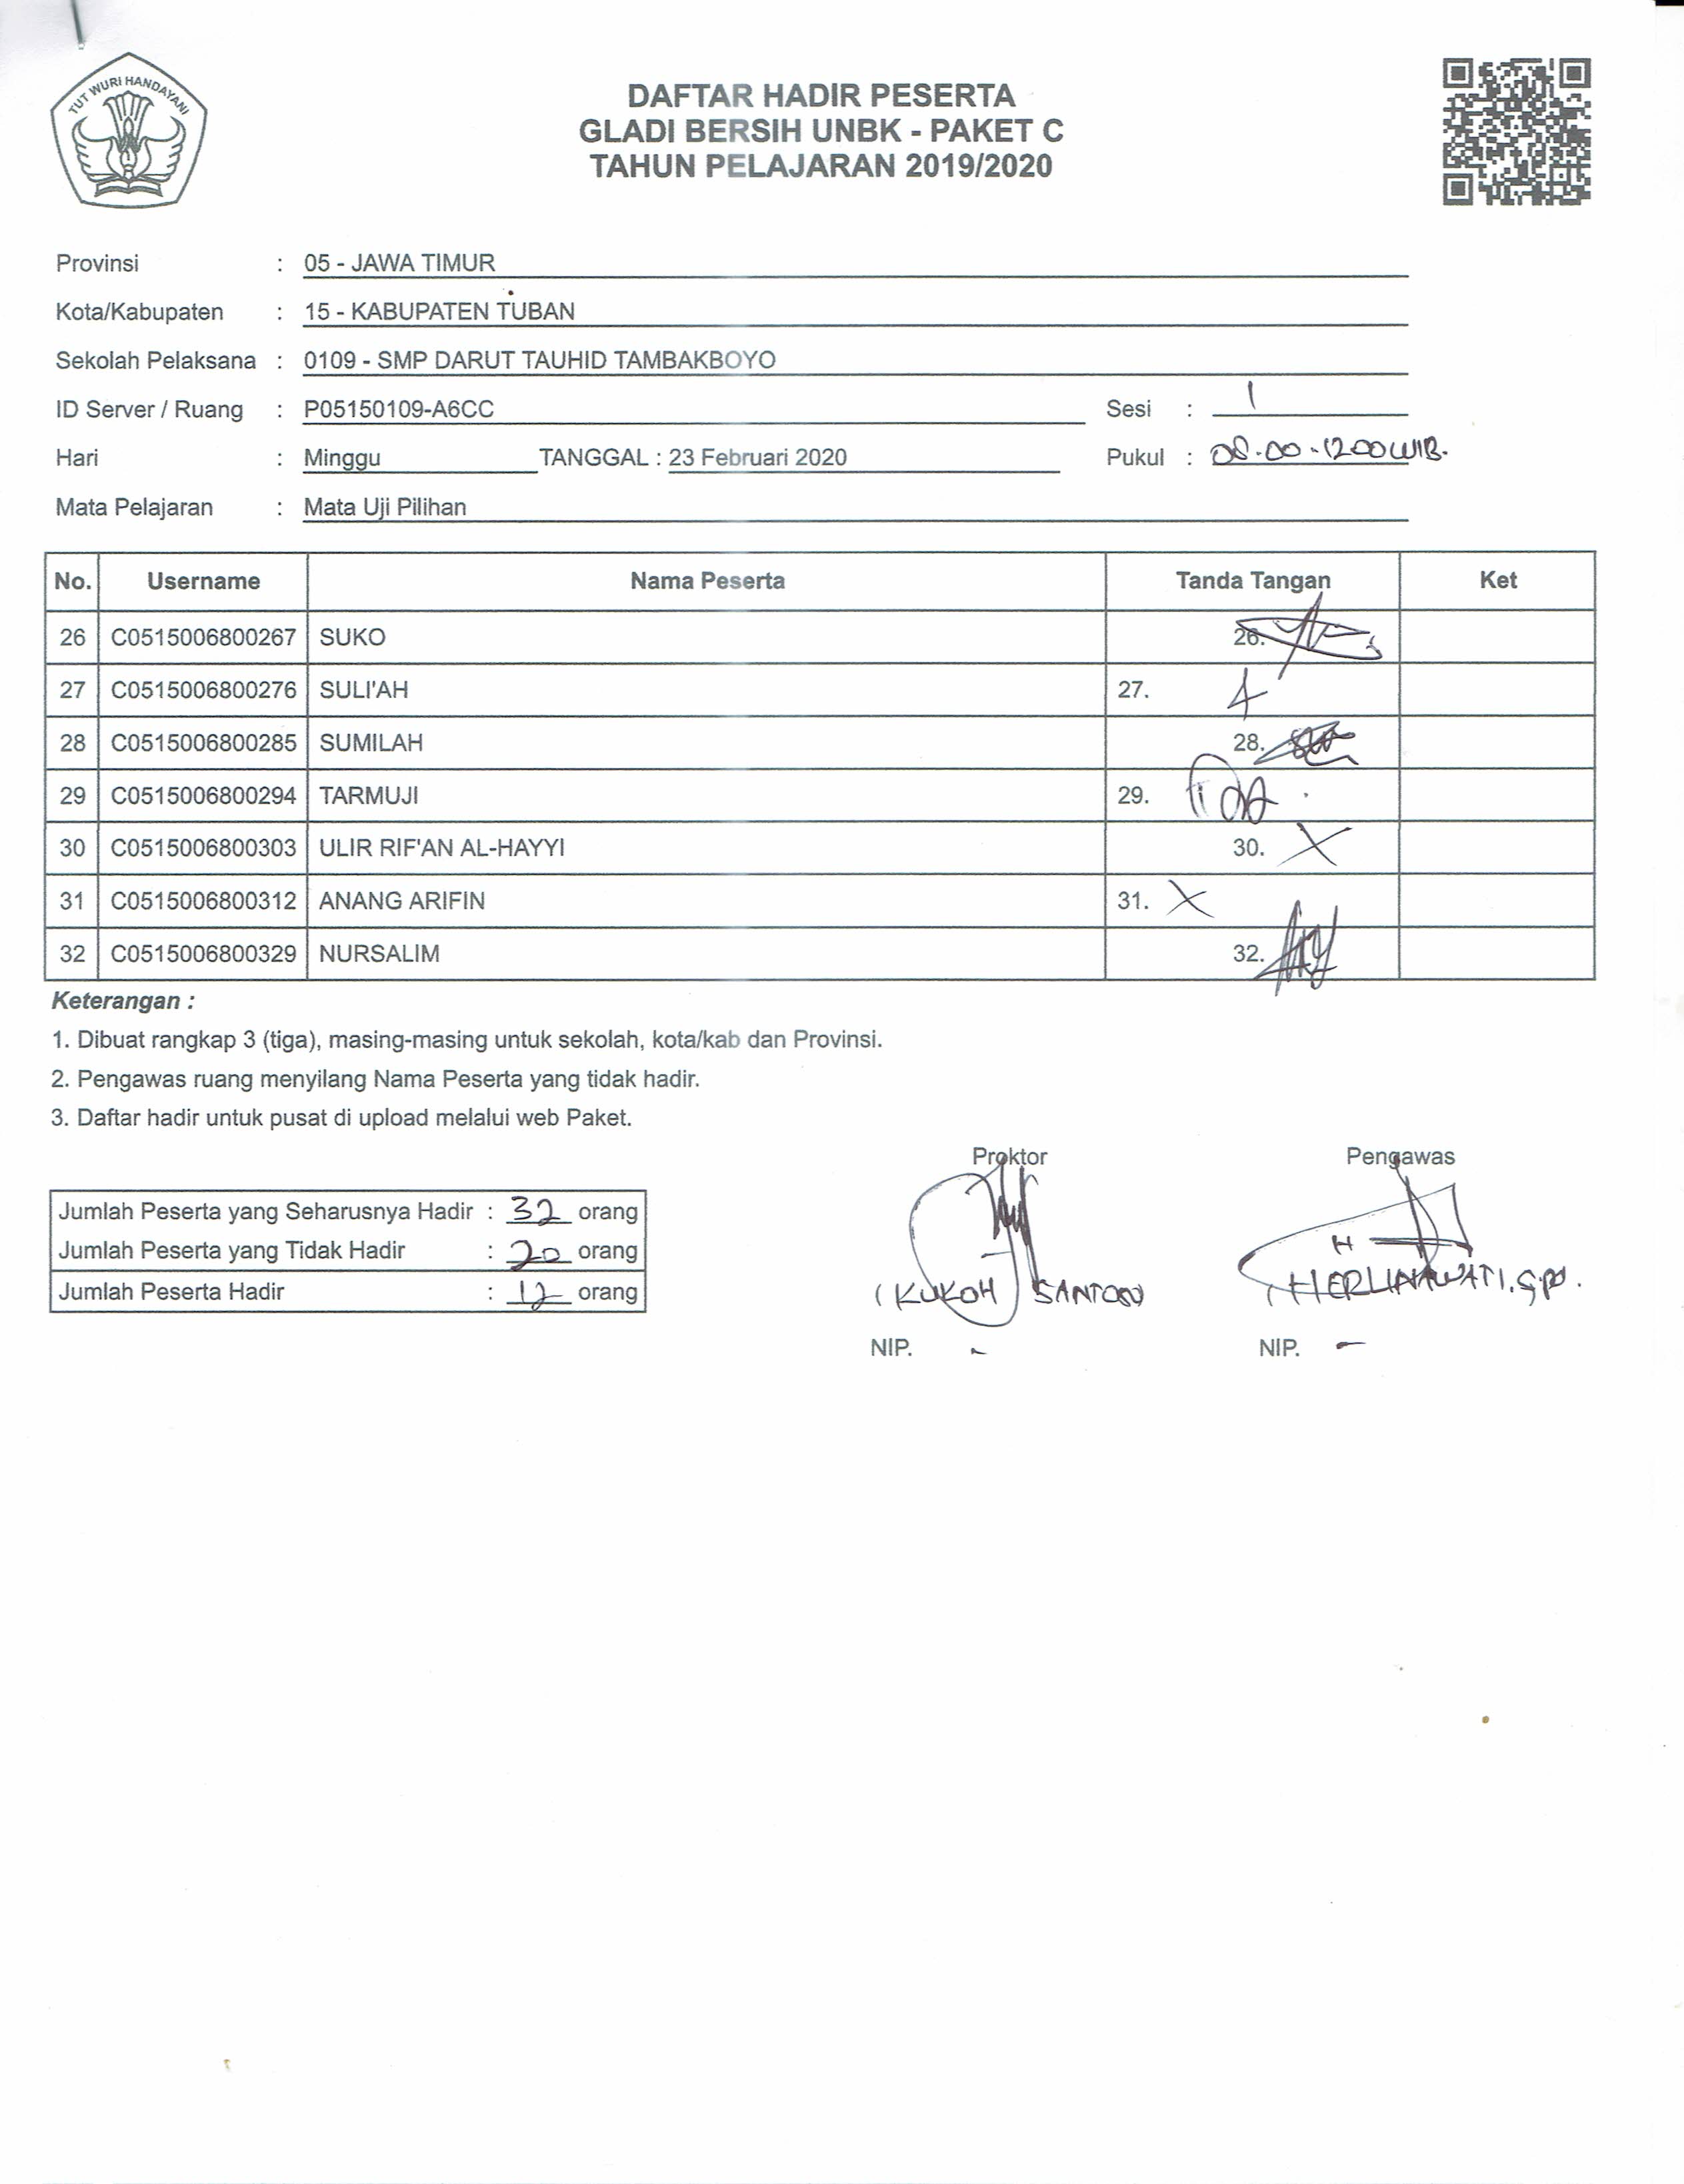 TUT WURI HANDAYANI
DAFTAR HADIR PESERTA
GLADI BERSIH UNBK - PAKET C
TAHUN PELAJARAN 2019/2020
Provinsi : 05 - JAWA TIMUR
Kota/Kabupaten : 15 - KABUPATEN TUBAN
Sekolah Pelaksana : 0109 - SMP DARUT TAUHID TAMBAKBOYO
ID Server / Ruang : P05150109-A6CC Sesi : 1
Hari : Minggu TANGGAL : 23 Februari 2020 Pukul : 08.00-12.00 WIB.
Mata Pelajaran : Mata Uji Pilihan
No. Username Nama Peserta Tanda Tangan Ket
26 C0515006800267 SUKO 26.
27 C0515006800276 SULI'AH 27.
28 C0515006800285 SUMILAH 28.
29 C0515006800294 TARMUJI 29.
30 C0515006800303 ULIR RIF'AN AL-HAYYI 30. X
31 C0515006800312 ANANG ARIFIN 31. X
32 C0515006800329 NURSALIM 32.
Keterangan :
1. Dibuat rangkap 3 (tiga), masing-masing untuk sekolah, kota/kab dan Provinsi.
2. Pengawas ruang menyilang Nama Peserta yang tidak hadir.
3. Daftar hadir untuk pusat di upload melalui web Paket.
Proktor Pengawas
Jumlah Peserta yang Seharusnya Hadir : 32 orang
Jumlah Peserta yang Tidak Hadir : 20 orang
Jumlah Peserta Hadir : 12 orang
(KUKOH SANTOSO) (HERLINAWATI,
NIP. - NIP. -